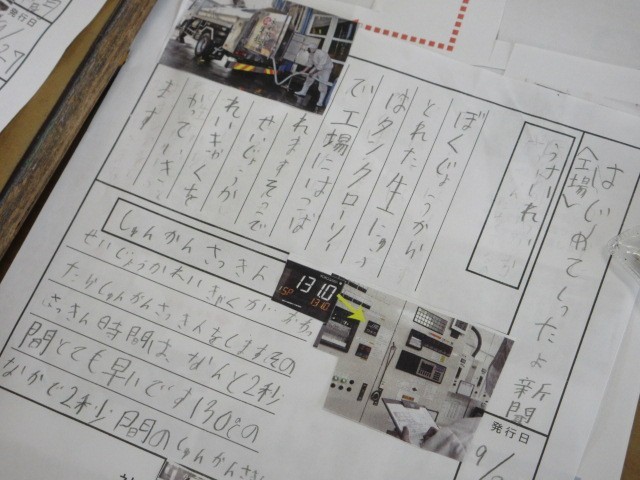 はじめてしったよ新聞
〈工場〉
うけいれ
ぼくじょうから
とれた生にゅう
はタンクローリィ
で工場にはっぱ
れますそこで
せいじょうか
れいきゃくを
かっていき
ます
しゅんかんさっきん
せいじょうかれいきゃくがおわっ
たらしゅんかんさっきんをします。その
さっきん時間は、なんと2秒
間とても早いです130℃の
なかで2秒間のしゅんかんさっ
131.0
SP 131.0
発行日
9/
発行日